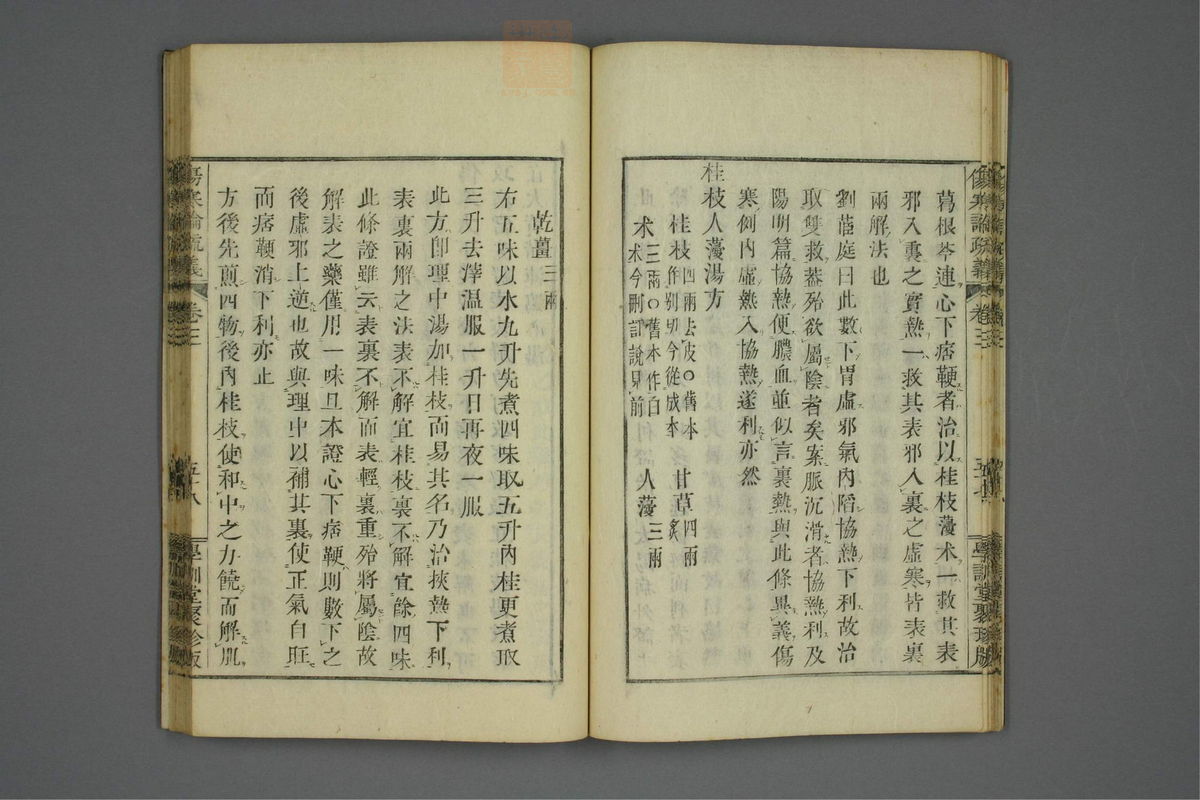 葛根芩連心下痞鞕者治以桂枝薓朮一救其表
邪入裏之實熱一救其表邪入裏之虛寒皆表裏
兩解法也
劉茝庭曰此數下胃虛邪氣內陷協熱下利故治
取雙救蓋殆欲屬陰者矣案脈沉滑者協熱利及
陽明篇協熱便膿血並似言裏熱與此條異義傷
寒例內虛熱入協熱遂利亦然
桂枝人薓湯方
桂枝四兩去皮○舊本作別切今從成本
甘草四兩炙
朮三兩○舊本作白朮今刪訂說見前
人薓三兩
傷寒論疏義
卷三
學訓堂聚珍版
乾薑三兩
右五味以水九升先煮四味取五升內桂更煮取
三升去滓溫服一升日再夜一服
此方卽理中湯加桂枝而易其名乃治挾熱下利
表裏兩解之法表不解宜桂枝裏不解宜餘四味
此條證雖云表裏不解而表輕裏重殆將屬陰故
解表之藥僅用一味且本證心下痞鞕則數下之
後虛邪上逆也故與理中以補其裏使正氣自旺
而痞鞕消下利亦止
方後先煎四物後內桂枝使和中之力饒而解肌
傷寒論疏義
卷三
五十八
學訓堂聚珍版